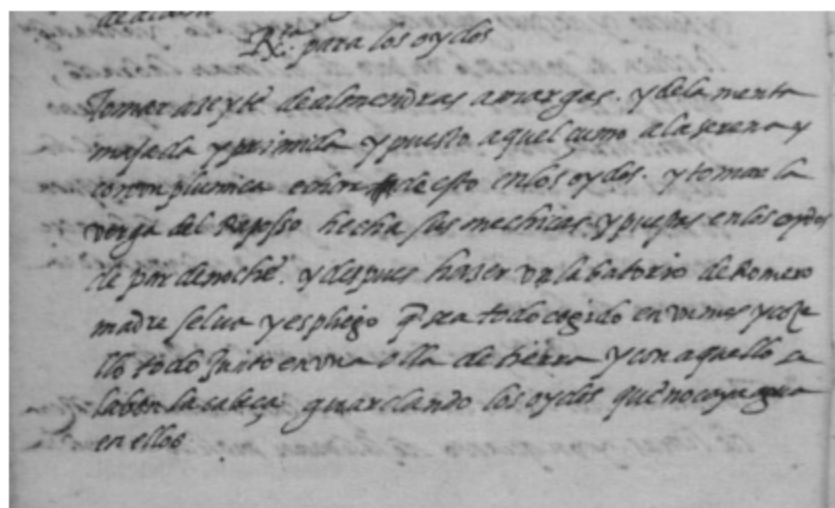 Rta para los oydos
Tomar aseyte de almendras amargas. y de la menta
majada y primida y puesto aquel çumo a la serena y
con vn plumica echar de esto en los oydos. y tomar la
verga del Raposso hecha sus mechicas y puestas en los oydos
de par de noche. y despues haser vn labatorio de Romero
madre selva y espliego q sea todo cogido en vn mes y coze
llo todo junto en vna olla de tierra y con aquello
laben la cabeça guardando los oydos que no caya agua
en ellos